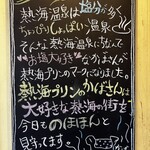 熱海温泉は塩分が多く
ちょっぴりしょっぱい温泉
そんな熱海温泉にちなんで
お塩大好き かばさんが
熱海プリンのマークになりました。
熱海プリンのかばさんは
大好きな熱海の街を
今日ものほほんと
見守ってます。